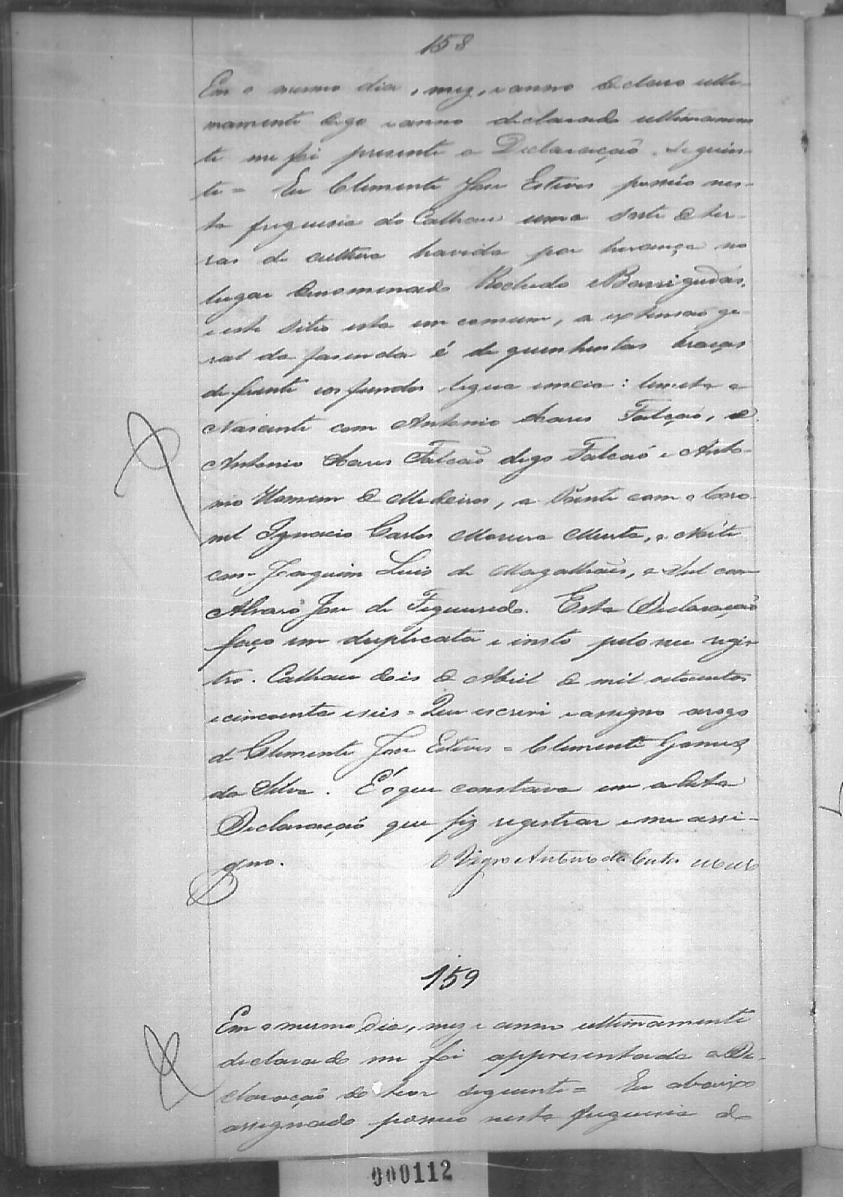 158
Em o mesmo dia, mez, e anno declaro ulti-
mamente digo e anno declarado ultimamen
te me foi presente a Declaração seguin-
te = Eu Clemente Jose Esteves possuo nes-
ta freguesia do Calhau uma sorte de ter-
ras de cultura havida por herança no
lugar denominado Rochedo e Barrigudas,
e este sitio esta em comum, a extensaõ ge-
ral da fasenda é de quinhentas braças
de frente com fundos legua e meia: limita a
Nascente com Antonio Soares Falcaõ, e
Antonio Soares Falcaõ digo Falcaõ e Anto-
nio Homem de Medeiros, a Poente com o Coro-
nel Ignacio Carlos Moreira Murta, a Norte
com Joaquim Luis de Magalhaẽs, e Sul com
Alvaro Jose de Figueiredo. Esta Declaração
faço em duplicata e insto pelo seu regis
tro. Calhau dois de Abril de mil oitocentos
e cincoenta e seis = Que escrevi e assigno arogo
de Clemente Jose Esteves = Clemente Gomes
da Silva. É o que constava em a dita
Declaraçaõ que fiz registrar e me assi-
gno.
O Vigro Antero da Costa
159
Em o mesmo dia, mez e anno ultimamente
declarado me foi appresentada a De-
claração do teor seguinte = Eu abaixo
assignado possuo nesta freguesia de
000112